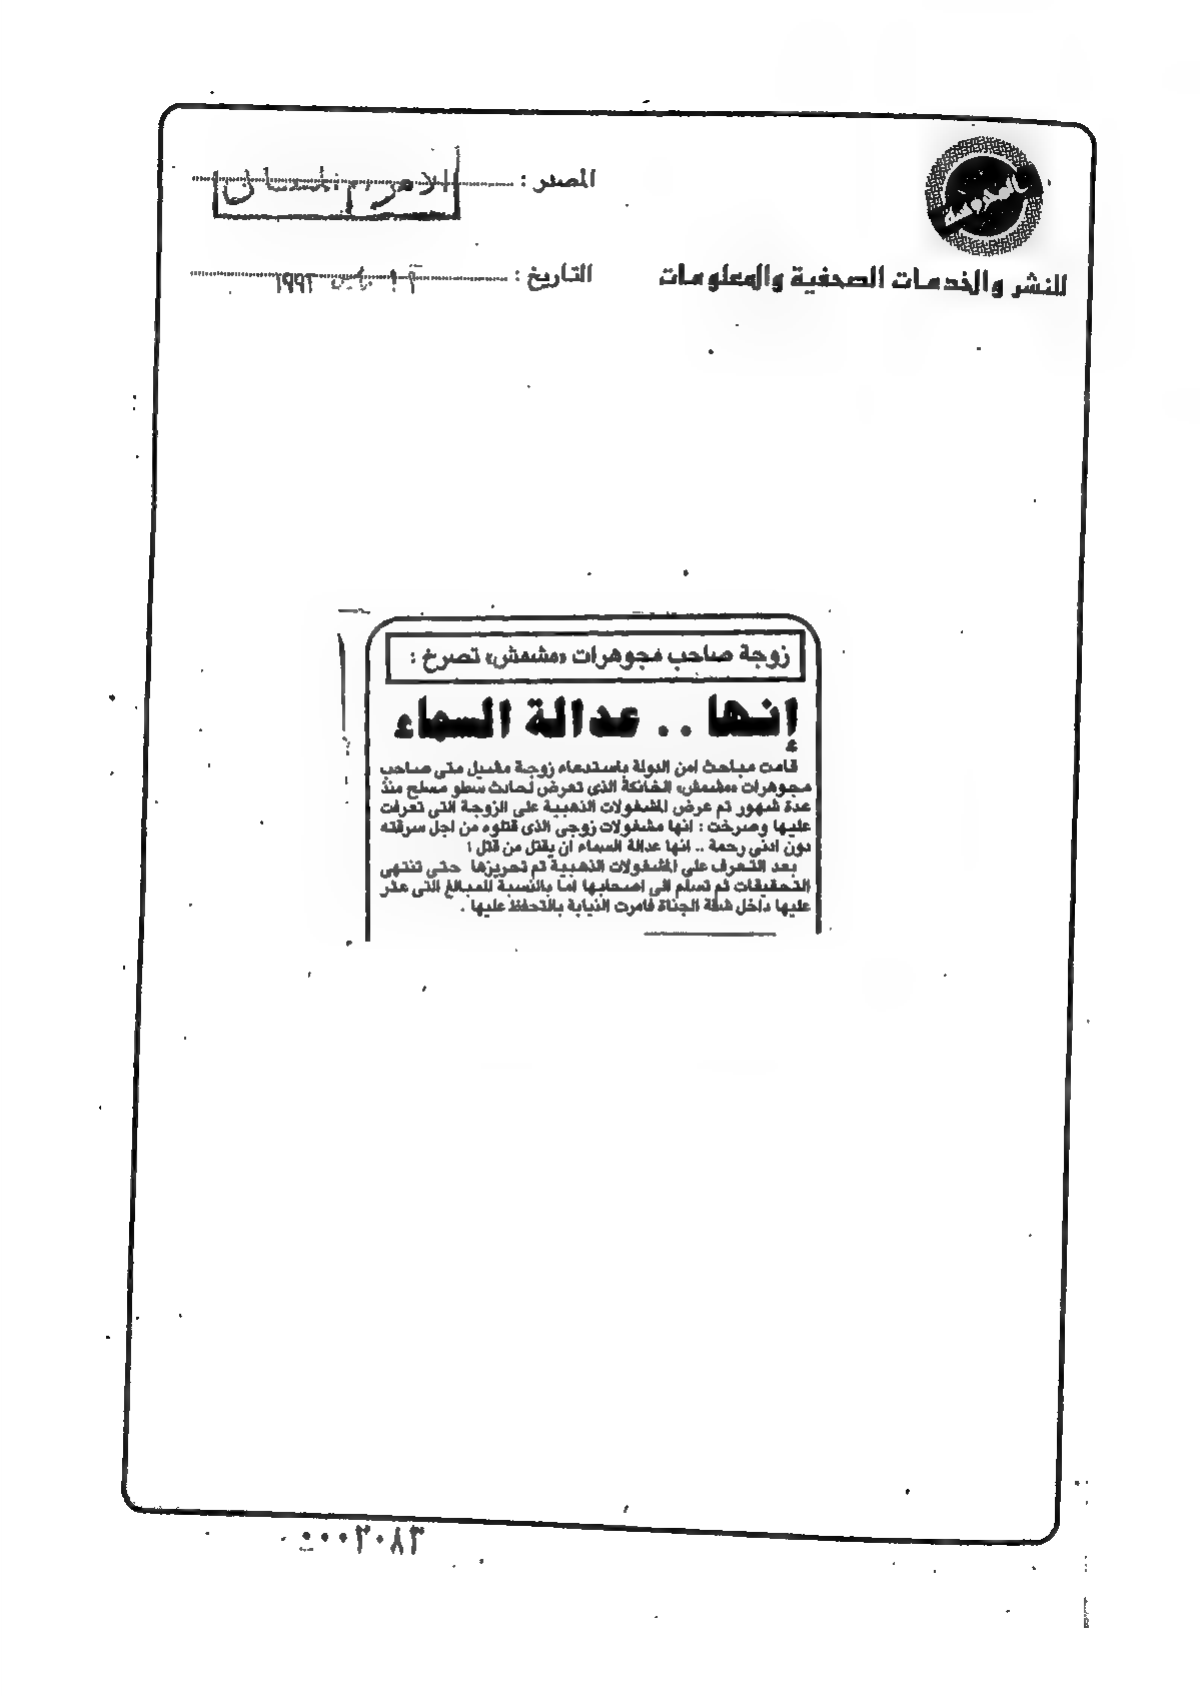 المحروسة
للنشر والخدمات الصحفية والمعلومات
المصدر :
التاريخ : ١٩٩٢
زوجة صاحب مجوهرات «مشمش» تصرخ :
إنها .. عدالة السماء
قامت مباحث امن الدولة باستدعاء زوجة مشيل متى صاحب
مجوهرات «مشمش» الخانكة الذى تعرض لحادث سطو مسلح منذ
عدة شهور تم عرض المشغولات الذهبية على الزوجة التى تعرفت
عليها وصرخت : انها مشغولات زوجى الذى قتلوه من اجل سرقته
دون ادنى رحمة .. انها عدالة السماء ان يقتل من قتل !
بعد التعرف على المشغولات الذهبية تم تحريزها حتى تنتهى
التحقيقات ثم تسلم الى اصحابها اما بالنسبة للمبالغ التى عثر
عليها داخل شقة الجناة فامرت النيابة بالتحفظ عليها .